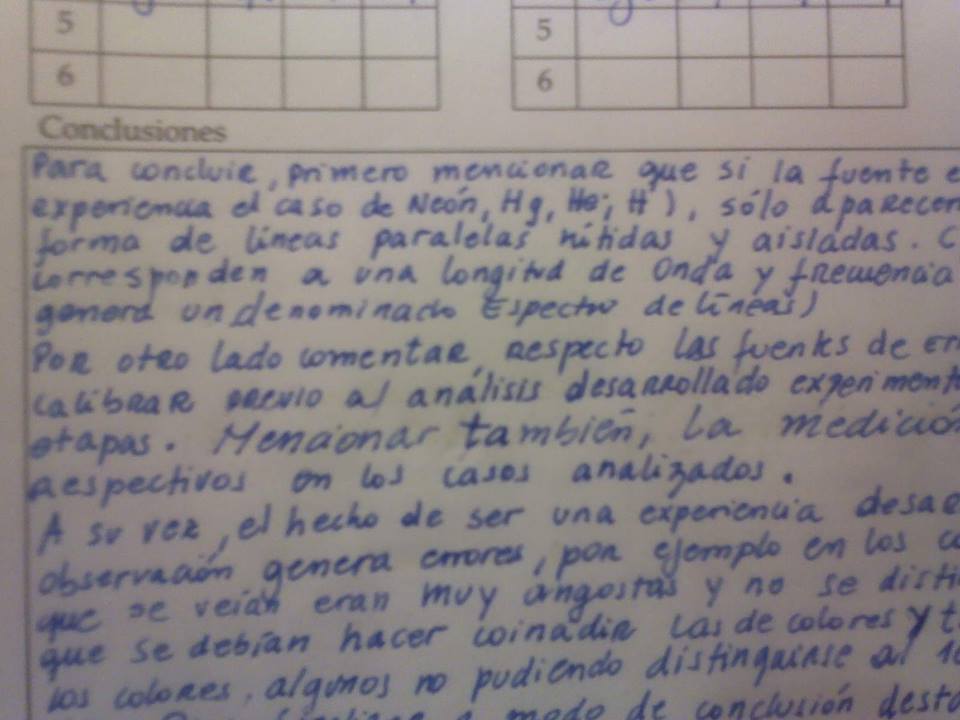 5
5
6
6
Conclusiones
Para concluir, primero mencionar que si la fuente e
experiencia el caso de Neón, Hg, He; H), sólo aparecen
forma de líneas paralelas nítidas y aisladas. C
corresponden a una longitud de Onda y frecuencia
genera un denominado Espectro de líneas)
Por otro lado comentar, respecto las fuentes de er
calibrar previo al análisis desarrollado experiment
etapas. Mencionar también, La medición
respectivos en los casos analizados.
A su vez, el hecho de ser una experiencia desar
observación genera errores, por ejemplo en los c
que se veían eran muy angostas y no se disti
que se debían hacer coincidir las de colores y t
los colores, algunos no pudiendo distinguirse al 10
a modo de conclusión desta